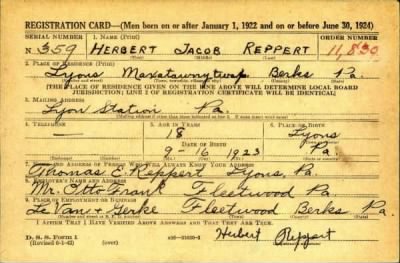 REGISTRATION CARD—(Men born on or after January 1, 1922 and on or before June 30, 1924)
SERIAL NUMBER 1. NAME (Print) ORDER NUMBER
N 359 HERBERT JACOB REPPERT 11,830
(First) (Middle) (Last)
2. PLACE OF RESIDENCE (Print)
Lyons Maxatawny twsp. Berks Pa.
[THE PLACE OF RESIDENCE GIVEN ON THE LINE ABOVE WILL DETERMINE LOCAL BOARD
JURISDICTION; LINE 2 OF REGISTRATION CERTIFICATE WILL BE IDENTICAL]
3. MAILING ADDRESS
Lyon Station Pa.
4. TELEPHONE 5. AGE IN YEARS 6. PLACE OF BIRTH
— 18 Lyons
DATE OF BIRTH
9 - 16 1923 Pa.
7. NAME AND ADDRESS OF PERSON WHO WILL ALWAYS KNOW YOUR ADDRESS
Thomas E. Reppert Lyons, Pa.
8. EMPLOYER'S NAME AND ADDRESS
Mr. Otto Frank Fleetwood Pa
9. PLACE OF EMPLOYMENT OR BUSINESS
Le Van & Gerke Fleetwood Berks Pa.
I AFFIRM THAT I HAVE VERIFIED ABOVE ANSWERS AND THAT THEY ARE TRUE.
D. S. S. Form 1
(Revised 6-1-42)
Herbert Reppert